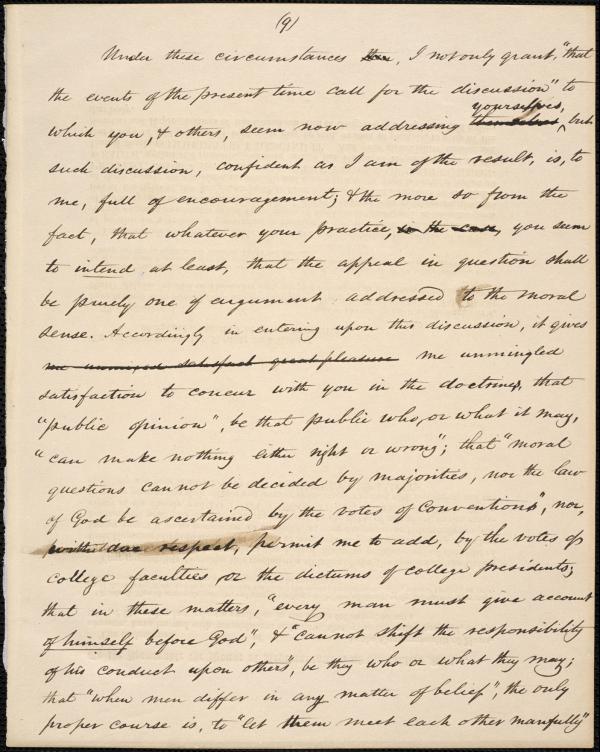 (9)
Under these circumstances , I not only grant, "that
the events of the present time call for the discussion" to
yourselves,
which you, & others, seem now addressing themselves, but
such discussion, confident as I am of the result, is, to
me, full of encouragement; & the more so from the
fact, that whatever your practice, in the case, you seem
to intend at least, that the appeal in question shall
be purely one of argument addressed to the moral
sense. Accordingly in entering upon this discussion, it gives
me unmixed satisfact great pleasure me unmingled
satisfaction to concur with you in the doctrines, that
"public opinion", be that public who, or what it may,
"can make nothing either right or wrong"; that "moral
questions cannot be decided by majorities, nor the law
of God be ascertained by the votes of Conventions", nor,
with due respect, permit me to add, by the votes of
college faculties or the dictums of college presidents;
that in these matters, "every man must give account
of himself before God", & "cannot shift the responsibility
of his conduct upon others", be they who or what they may;
that "when men differ in any matter of belief", the only
proper course is, to "let them meet each other manfully"